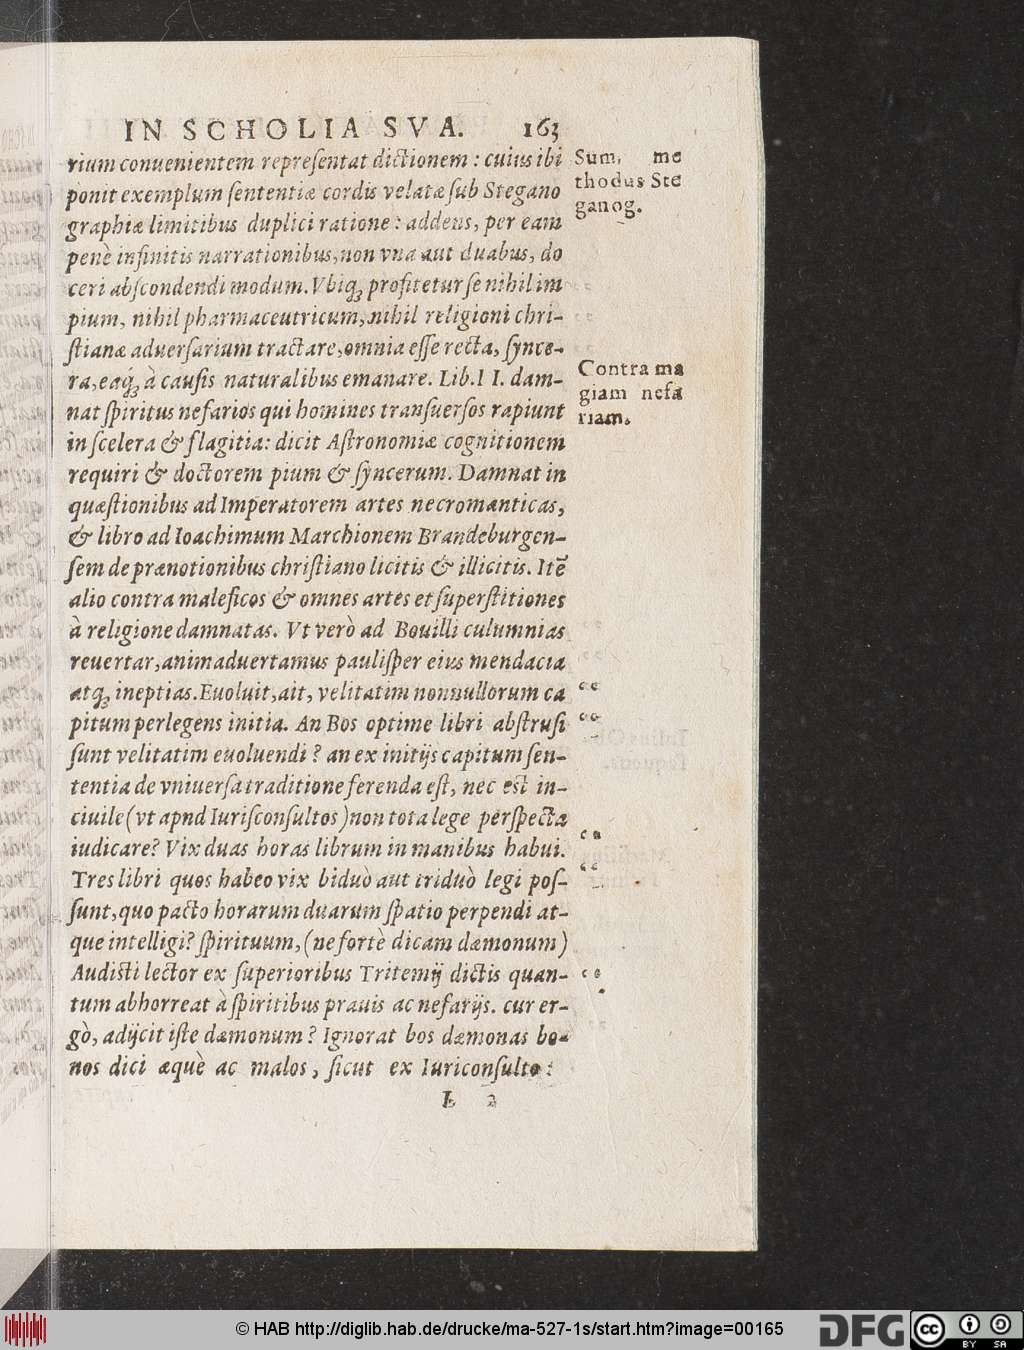 IN SCHOLIA SVA. 163
rium conuenientem repreſentat dictionem : cuius ibi
ponit exemplum ſententiæ cordis velatæ ſub Stegano
graphiæ limitibus duplici ratione : addens, per eam
penè infinitis narrationibus, non vna aut duabus, do
ceri abſcondendi modum. Vbiq; profitetur ſe nihil im
pium, nihil pharmaceutricum, nihil religioni chri-
ſtianæ aduerſarium tractare, omnia eſſe recta, ſynce-
ra, eaq; à cauſis naturalibus emanare. Lib. I I. dam-
nat ſpiritus nefarios qui homines tranſuerſos rapiunt
in ſcelera & flagitia: dicit Aſtronomiæ cognitionem
requiri & doctorem pium & ſyncerum. Damnat in
quæſtionibus ad Imperatorem artes necromanticas,
& libro ad Ioachimum Marchionem Brandeburgen-
ſem de prænotionibus chriſtiano licitis & illicitis. Itē
alio contra maleficos & omnes artes et ſuperſtitiones
à religione damnatas. Vt verò ad Bouilli culumnias
reuertar, animaduertamus pauliſper eius mendacia
atq; ineptias. Euoluit, ait, velitatim nonnullorum ca
pitum perlegens initia. An Bos optime libri abſtruſi
ſunt velitatim euoluendi ? an ex initijs capitum ſen-
tentia de vniuerſa traditione ferenda eſt, nec est in-
ciuile (vt apnd Iuriſconſultos) non tota lege perſpecta
iudicare? Vix duas horas librum in manibus habui.
Tres libri quos habeo vix biduò aut triduò legi poſ-
ſunt, quo pacto horarum duarum ſpatio perpendi at-
que intelligi? ſpirituum, (ne fortè dicam dæmonum)
Audisti lector ex ſuperioribus Tritemij dictis quan-
tum abhorreat à ſpiritibus prauis ac nefarijs. cur er-
gò, adijcit iſte dæmonum? Ignorat bos dæmonas bo-
nos dici æquè ac malos, ſicut ex Iuriconſulto :
L 2
Sum. me
thodus Ste
ganog.
Contra ma
giam nefa
riam.
© HAB http://diglib.hab.de/drucke/ma-527-1s/start.htm?image=00165
DFG
cc BY SA